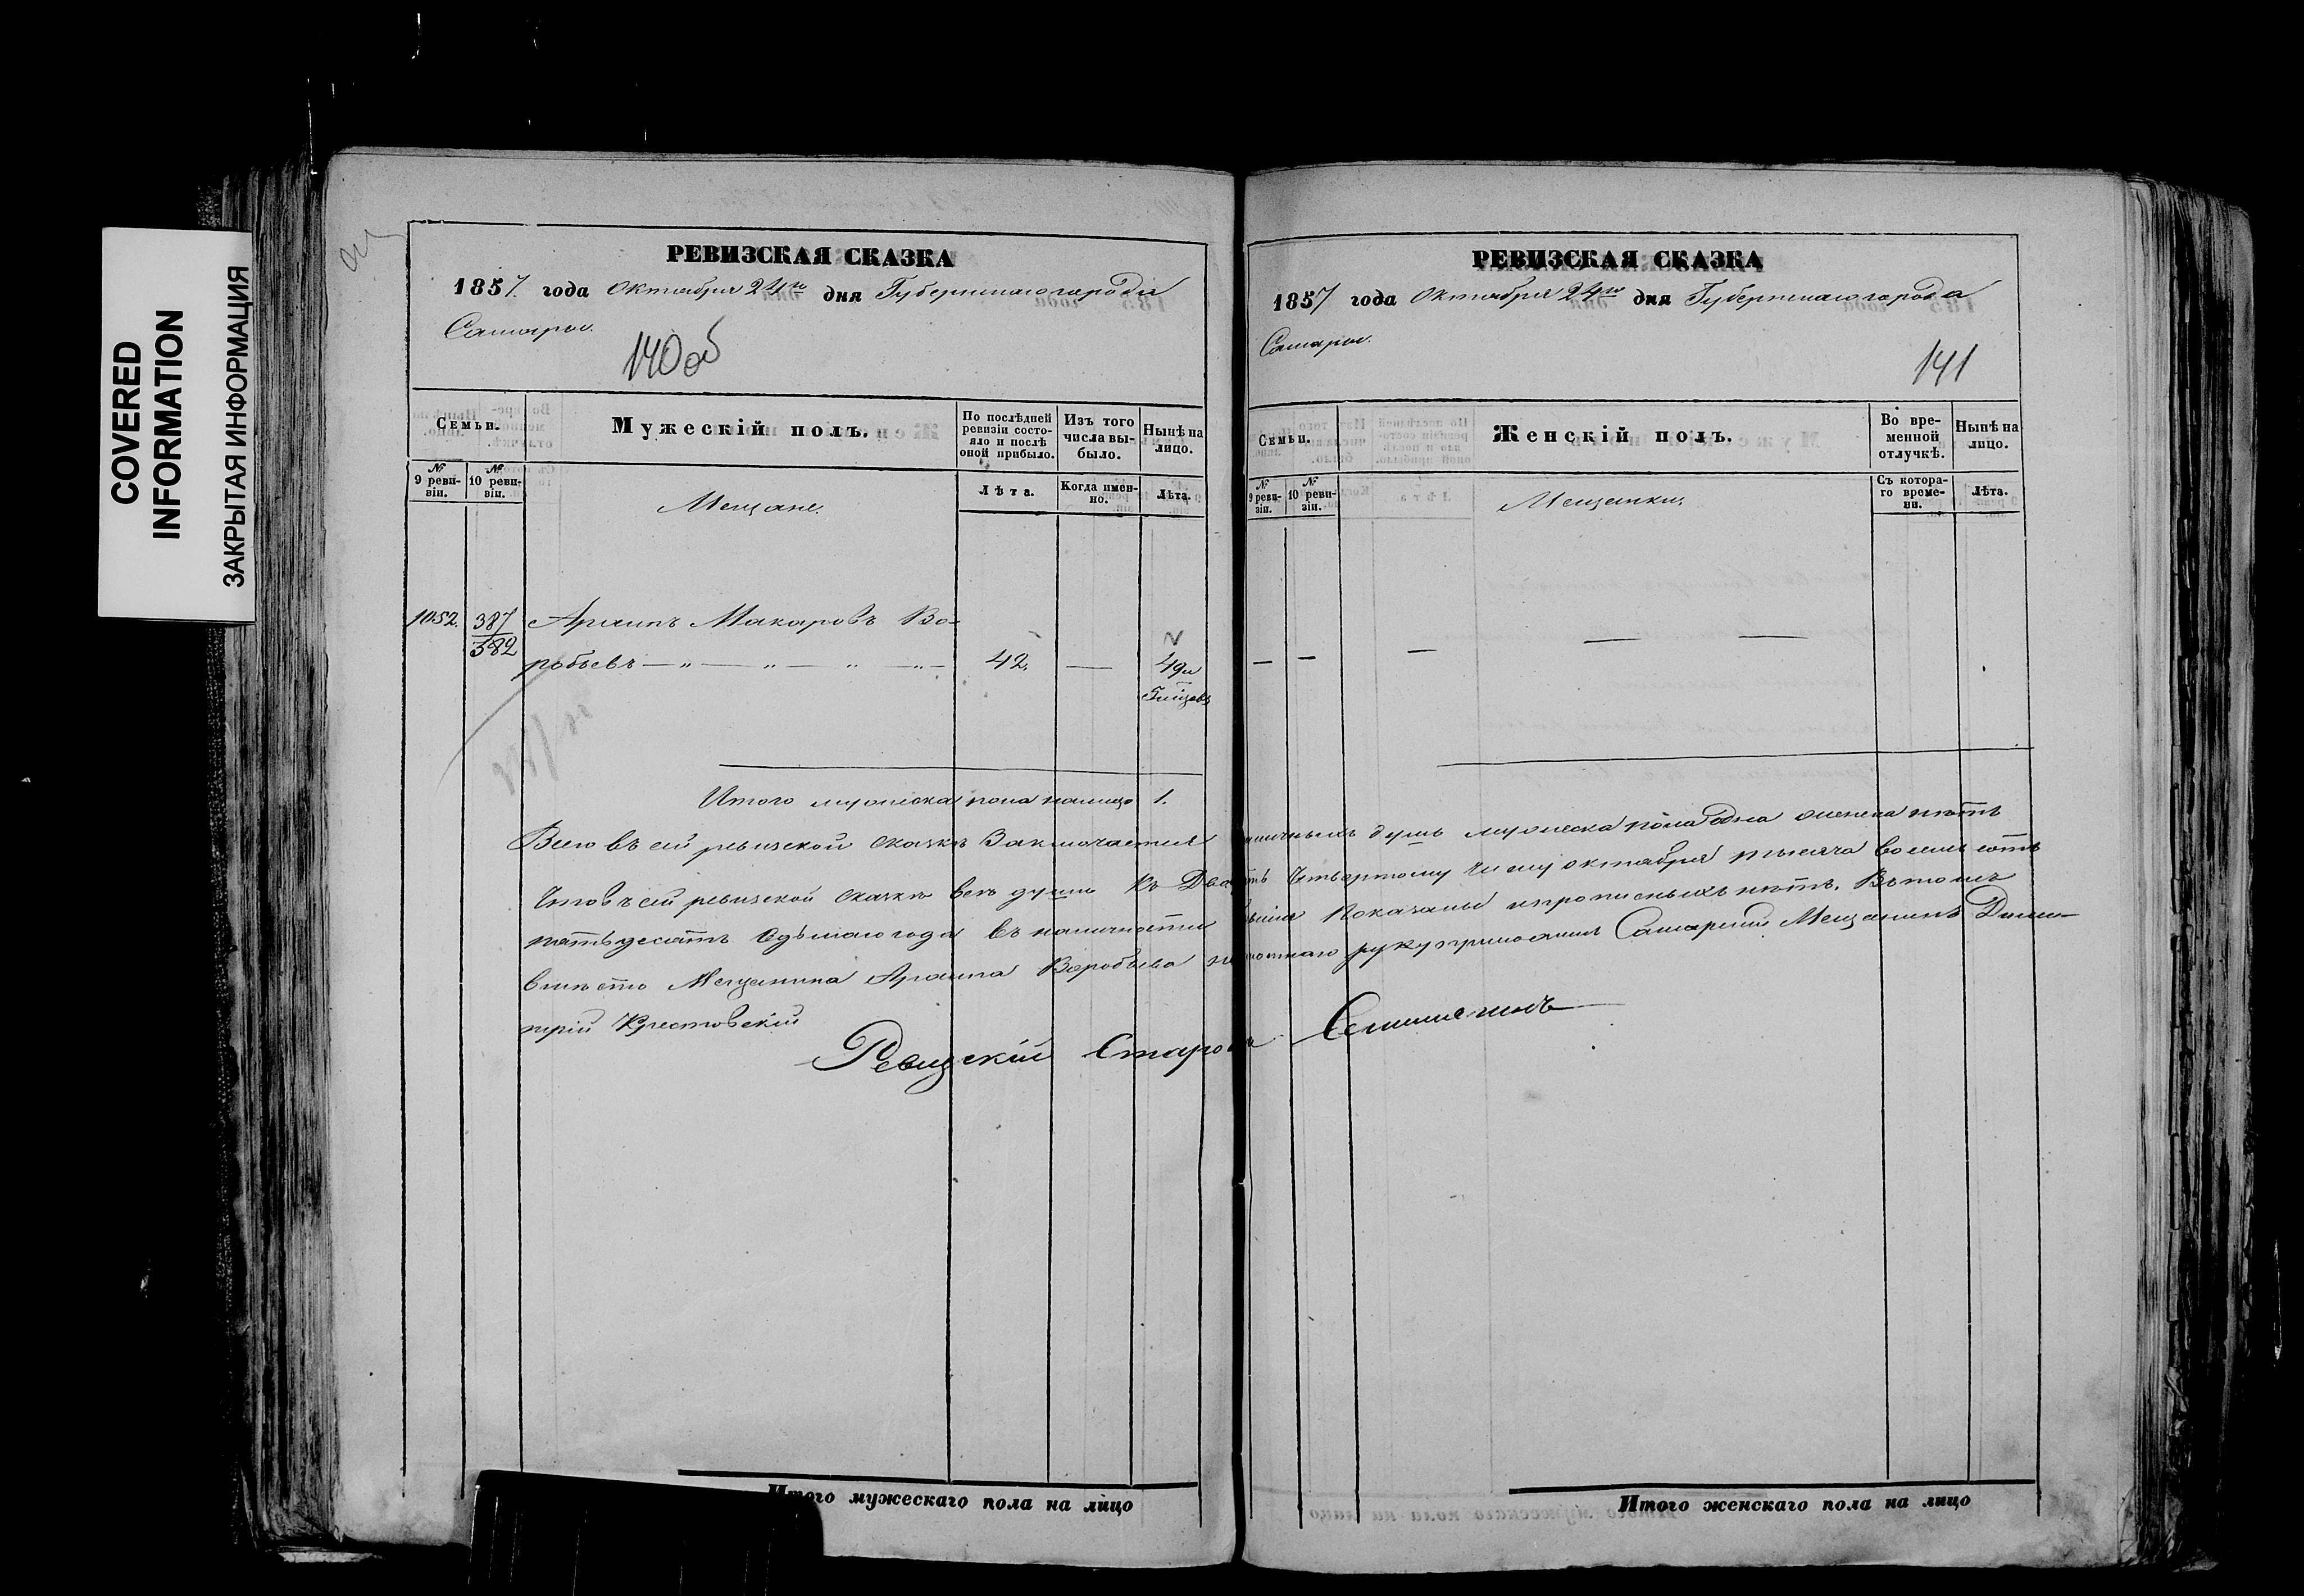 COVERED
INFORMATION
ЗАКРЫТАЯ ИНФОРМАЦИЯ
РЕВИЗСКАЯ СКАЗКА
1857 года Октября 24го дня Губернскаго города
Самары.
140 об
Семьи.
Мужескій полъ.
По послѣдней ревизіи состояло и послѣ оной прибыло.
Изъ того числа выбыло.
Нынѣ на лицо.
№ 9 ревизіи.
№ 10 ревизіи.
Мещане.
Лѣта.
Когда именно.
Лѣта.
1052. 387 Архипъ Макаровъ Во-
382
робьевъ 42. — 49
Итого мужеска пола налицо 1.
РЕВИЗСКАЯ СКАЗКА
1857 года Октября 24го дня Губернскаго города
Самары.
141
Семьи.
Женскій полъ.
Во временной отлучкѣ.
Нынѣ на лицо.
№ 9 ревизіи.
№ 10 ревизіи.
Мещанки.
Съ котораго времени.
Лѣта.
— — — — —
Всего въ сей ревизской сказкѣ Заключается наличныхъ душъ мужеска пола одна женска нѣтъ
Что въ сей ревизской сказкѣ всѣ души Къ Двадцать Четвертому Числу октября тысяча восемь сотъ
пятьдесятъ седьмаго года въ наличности Показаны и прописныхъ нѣтъ. Въ томъ
вмѣсто Мещанина Архипа Воробьева неграмотнаго руку приложилъ Самарскій Мещанинъ Дми-
трій Крестовскій
Ревизскій Староста
Итого мужескаго пола на лицо
Итого женскаго пола на лицо